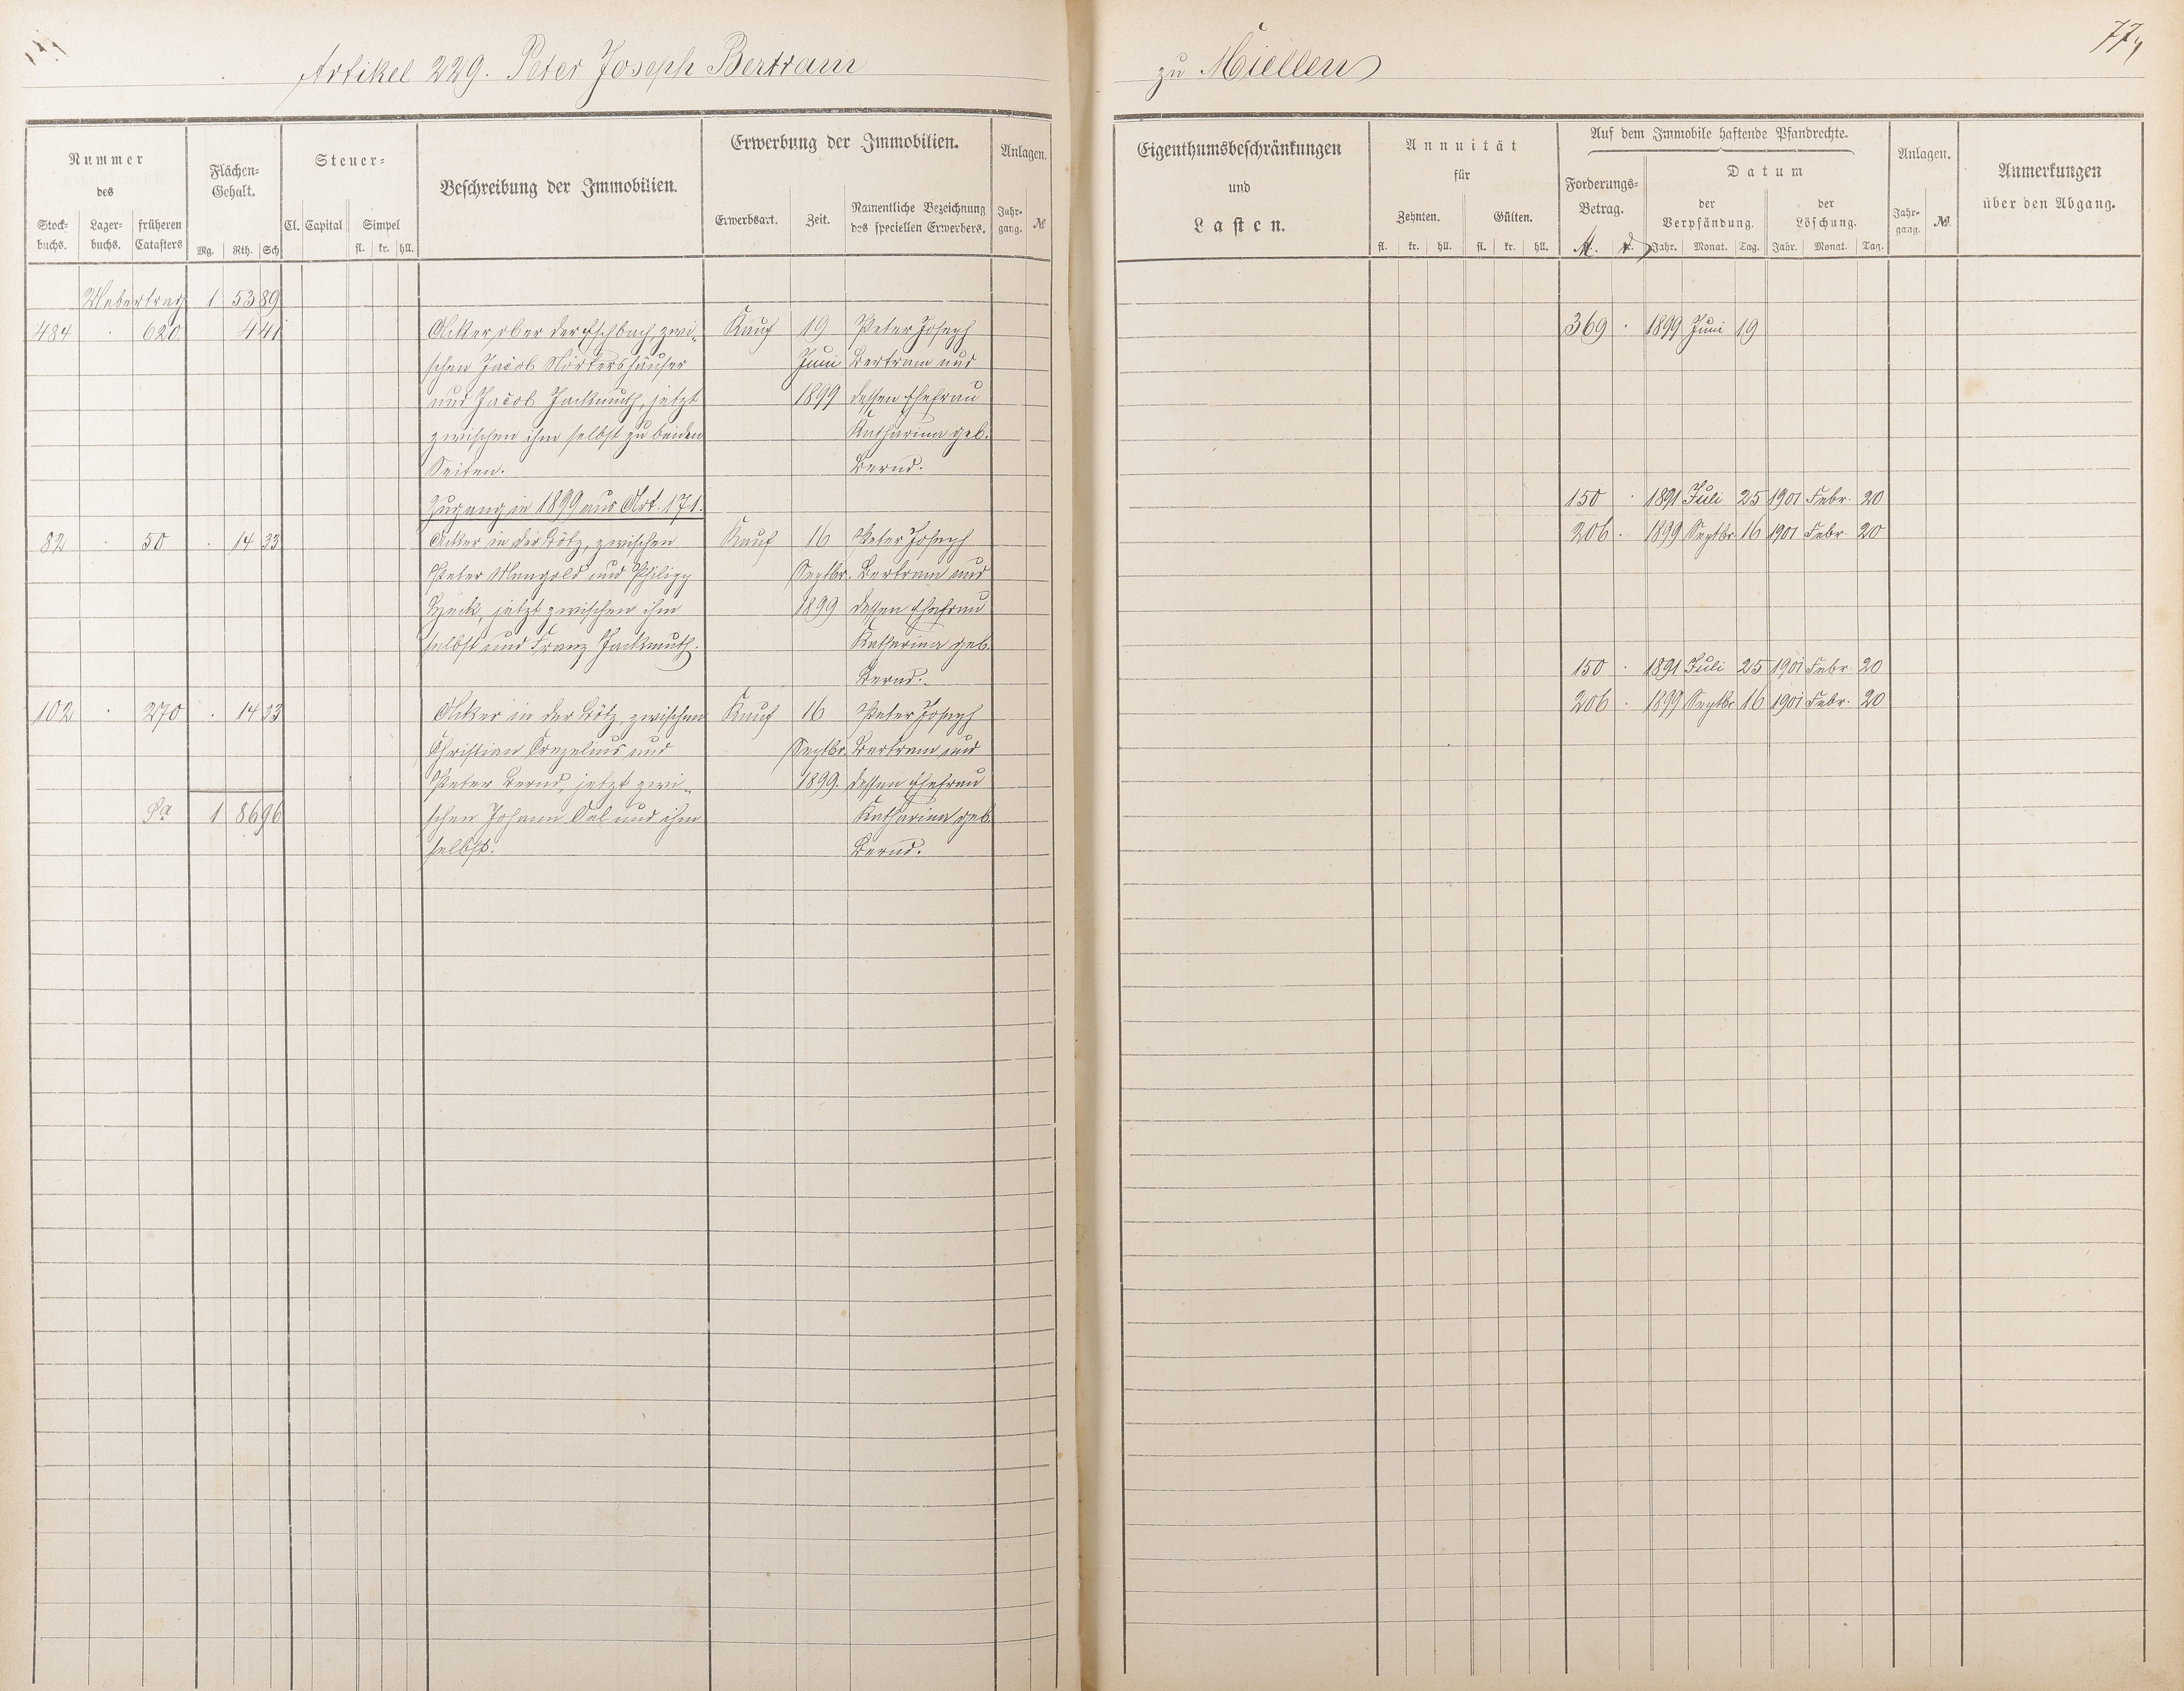 Artikel 229. Peter Joseph Bertram
zu Miellen
77,
Nummer
des
Stock-
buchs.
Lager-
buchs.
früheren
Catasters
Flächen-
Gehalt.
Mg. Rth. Sch
Steuer-
Cl. Capital Simpel
fl. kr. hll.
Beschreibung der Immobilien.
Erwerbung der Immobilien.
Erwerbsart. Zeit.
Namentliche Bezeichnung
des speciellen Erwerbers.
Anlagen.
Jahr-
gang. №
Eigenthumsbeschränkungen
und
Lasten.
Annuität
für
Zehnten. Gülten.
fl. kr. hll. fl. kr. hll.
Auf dem Immobile haftende Pfandrechte.
Forderungs-
Betrag.
M.
Datum
der
Verpfändung.
der
Löschung.
Jahr. Monat. Tag. Jahr. Monat. Tag.
Anlagen.
Jahr-
gang. №.
Anmerkungen
über den Abgang.
Uebertrag 1 53 89
484 . 620 4 41 Acker ober der Eschbach, zwi- Kauf 19 Peter Joseph 369 . 1899 Juni 19
schen Jacob Nörtershäuser Juni Bertram und
und Jacob Fackmuth, jetzt 1899 dessen Ehefrau
zwischen ihm selbst zu beiden Katharina geb.
Seiten. Bernd.
Zugang in 1899 aus Art. 171. 150 . 1891 Juli 25 1901 Febr. 20
82 . 50 . 14 33 Acker in der Zötz, zwischen Kauf 16 Peter Joseph 206 . 1899 Septbr. 16 1901 Febr. 20
Peter Mangold und Philipp Septbr. Bertram und
jetzt zwischen ihm 1899 dessen Ehefrau
selbst und Franz Fackmuth. Katharina geb.
Bernd. 150 . 1891 Juli 25 1901 Febr. 20
102 . 270 . 14 33 Acker in der Zötz, zwischen Kauf 16 Peter Joseph 206 . 1899 Septbr. 16 1901 Febr. 20
Christian Crezelius und Septbr. Bertram und
Peter Bernd, jetzt zwi- 1899. dessen Ehefrau
Sa 1 86 96 schen Johann und ihm Katharina geb.
selbst. Bernd.